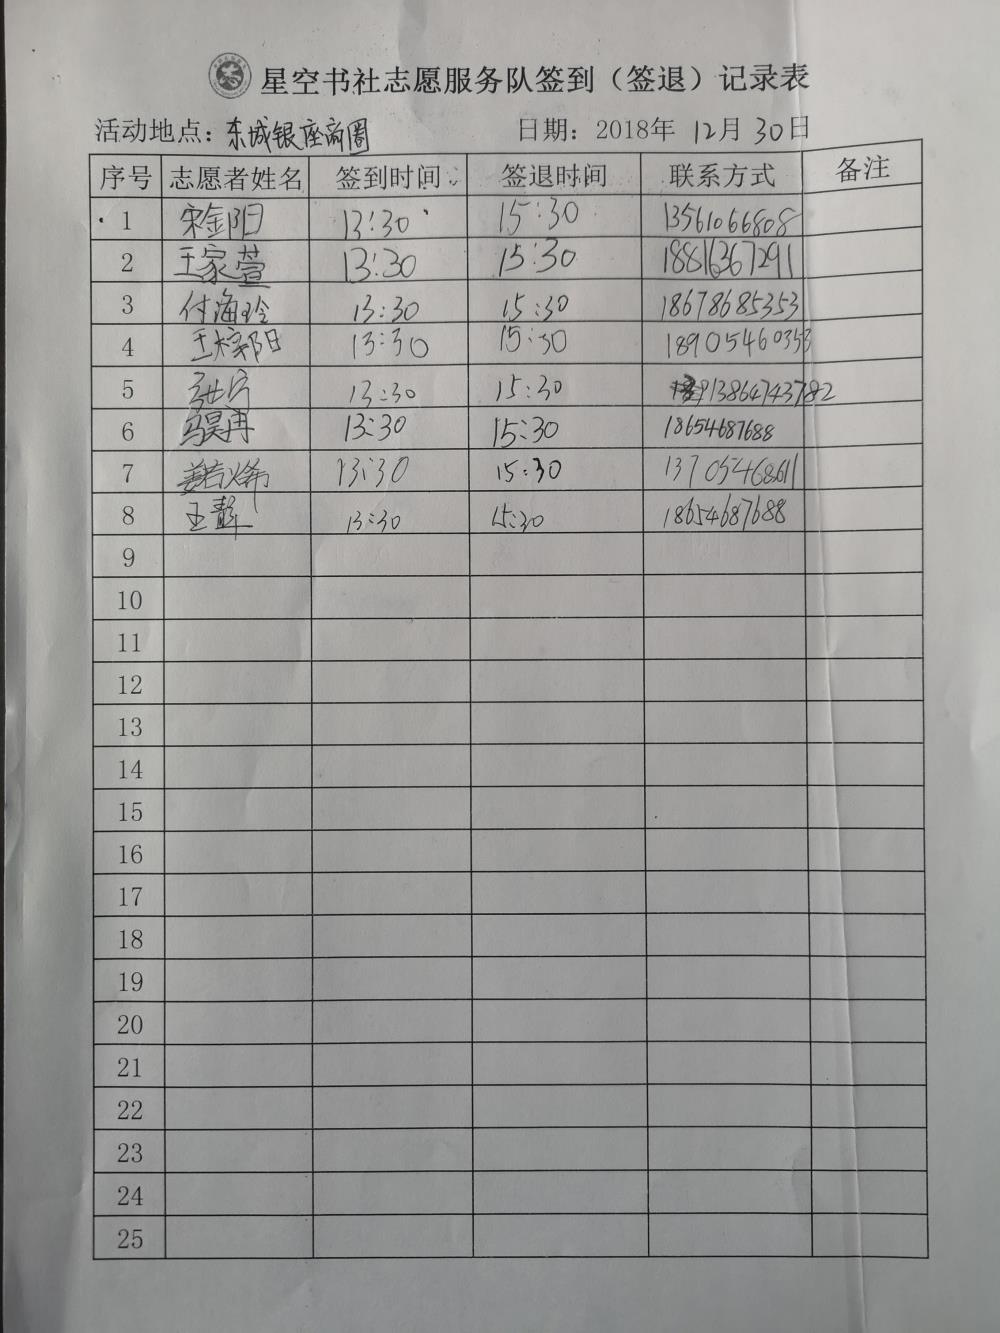 星空书社志愿服务队签到（签退）记录表
活动地点：东城银座商圈 日期：2018年 12月 30日
序号 志愿者姓名 签到时间 签退时间 联系方式 备注
1 宋金阳 13:30 15:30 13561066808
2 王家萱 13:30 15:30 18816367291
3 付海玲 13:30 15:30 18678685353
4 王梓阳 13:30 15:30 18905460353
5 13:30 15:30 13864743782
6 马昊冉 13:30 15:30 18654687688
7 姜若希 13:30 15:30 13705468611
8 王 13:30 15:30 18654687688
9
10
11
12
13
14
15
16
17
18
19
20
21
22
23
24
25